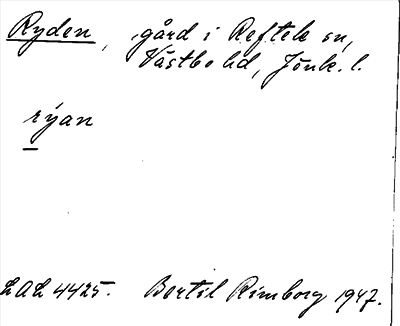 Ryden, gård i Reftele sn,
Västbo hd, Jönk. l.
rýan
LAL 4425. Bertil Rimborg 1947.